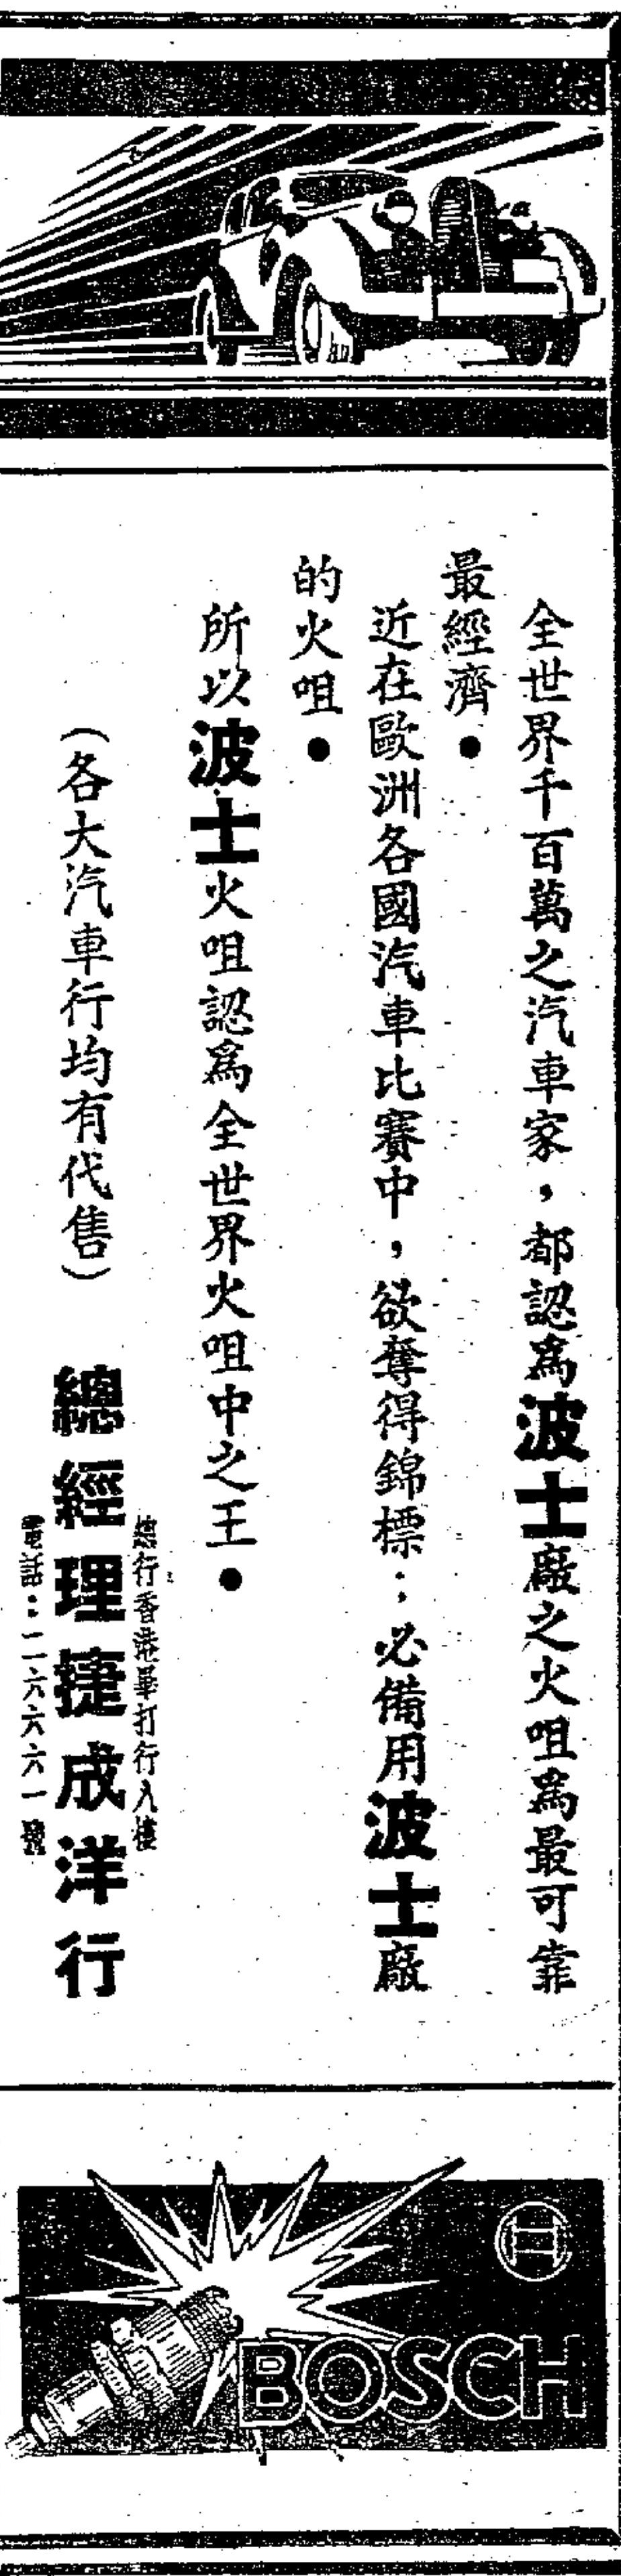 全世界千百萬之汽車家，都認爲波士廠之火咀爲最可靠
最經濟●
近在歐洲各國汽車比賽中，欲奪得錦標；必備用波士廠
的火咀●
所以波士火咀認爲全世界火咀中之王●
（各大汽車行均有代售）
總行香港畢打行八樓
總經理捷成洋行
電話：二六六六一號
BOSCH